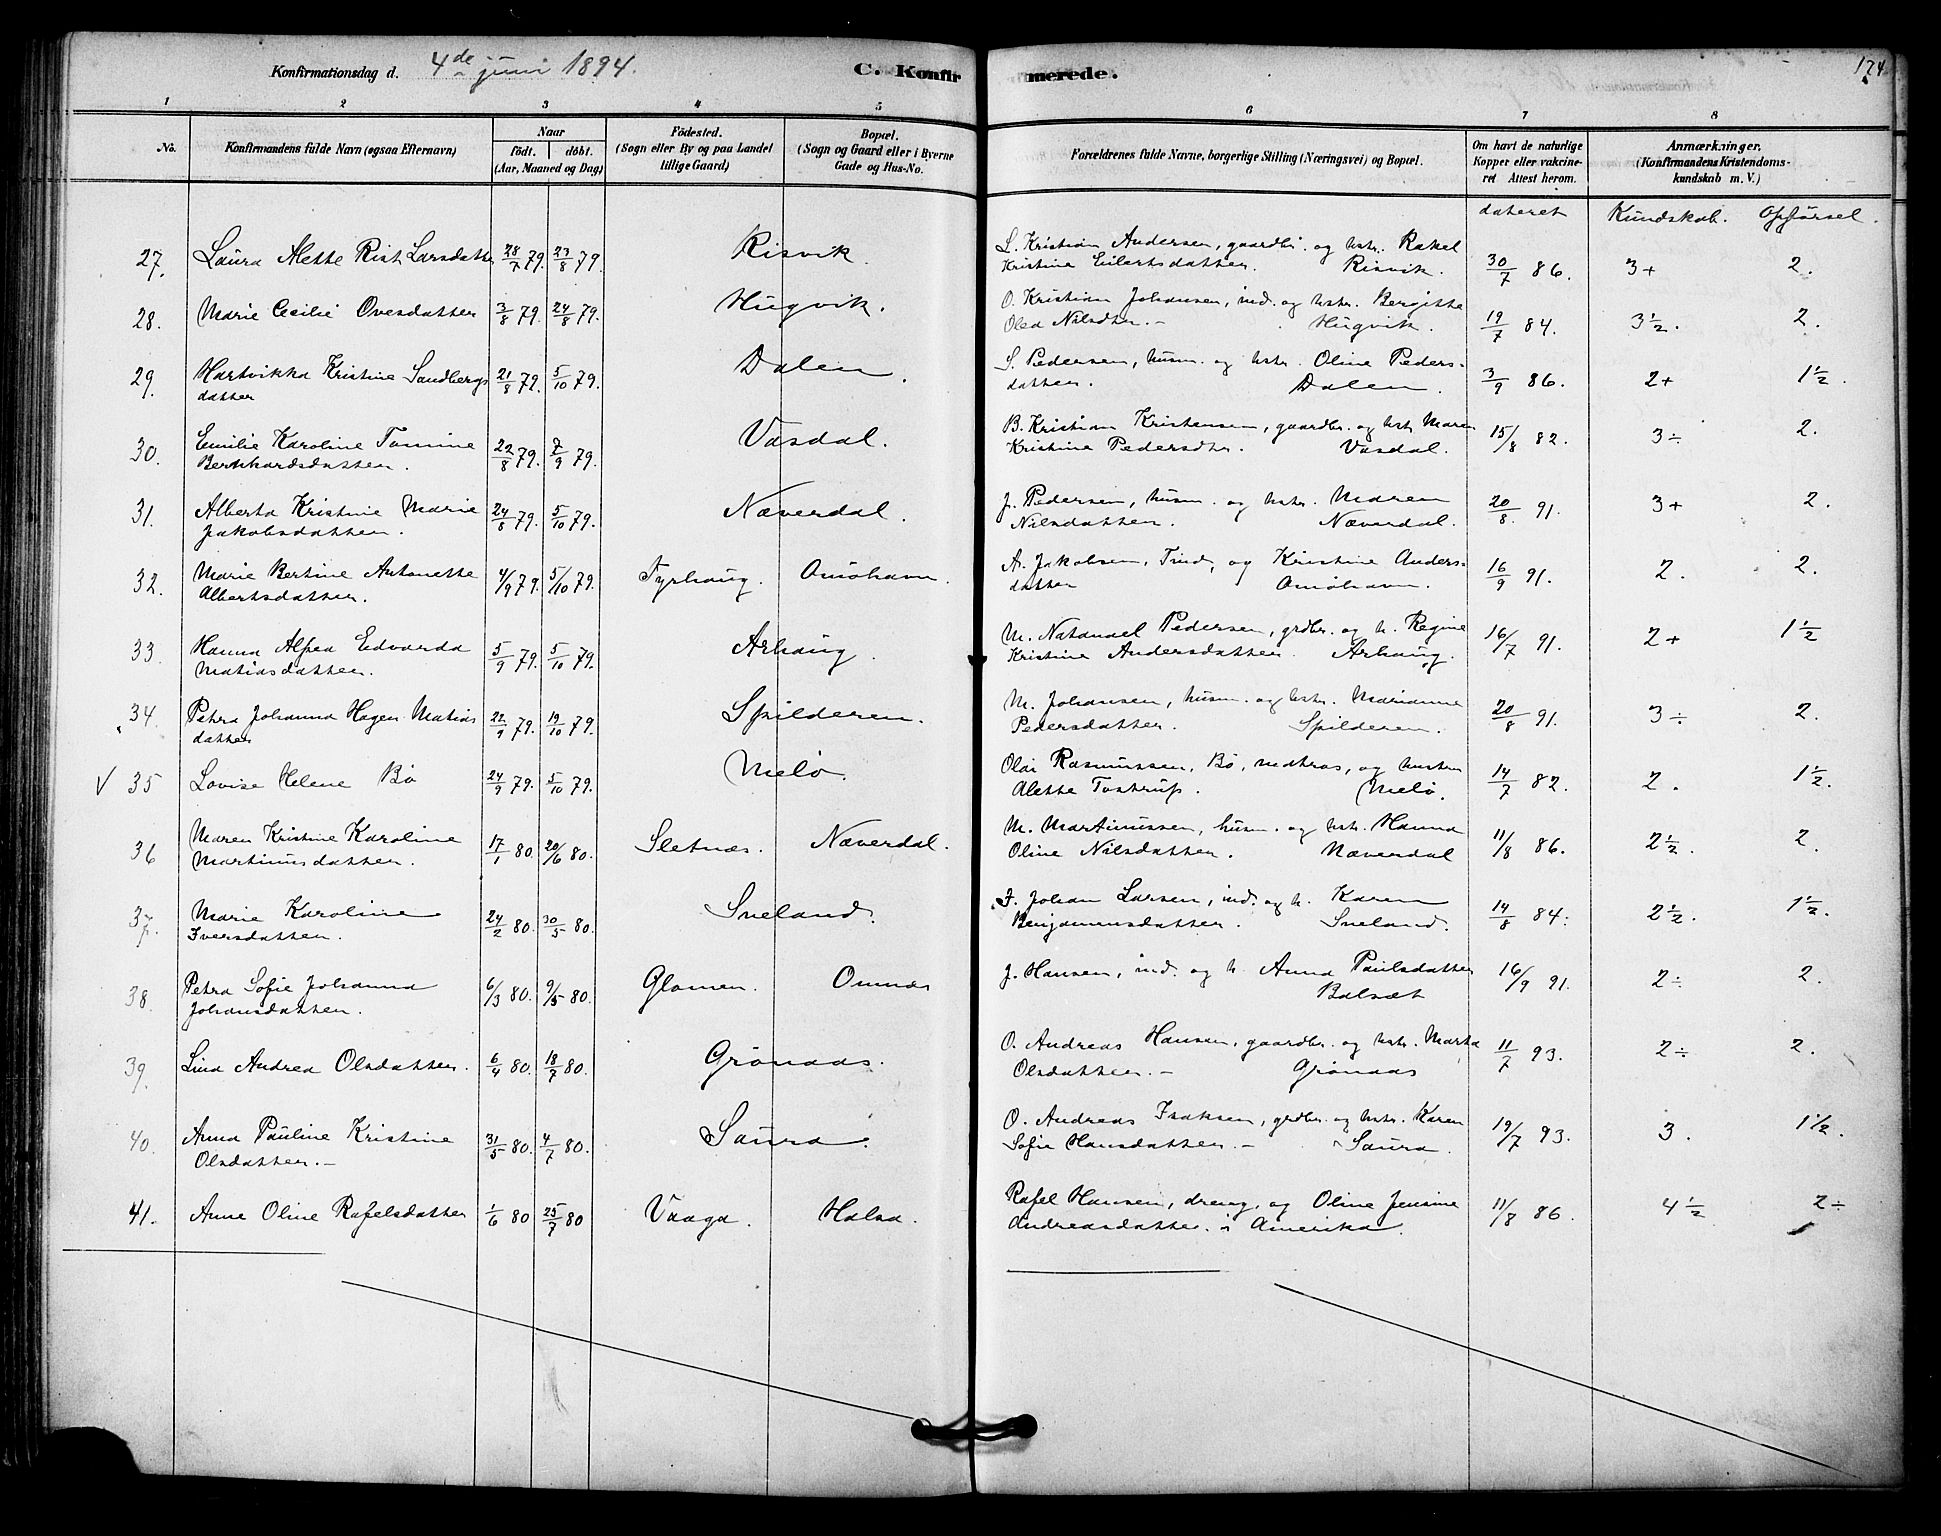 Konfirmationsdag d. 4de juni 1894.
C. Konfirmerede.
174
1 2 3 4 5 6 7 8
No.
Konfirmandens fulde Navn (ogsaa Efternavn)
Naar
født. døbt.
(Aar, Maaned og Dag)
Fødested.
(Sogn eller By og paa Landet
tillige Gaard)
Bopæl.
(Sogn og Gaard eller i Byerne
Gade og Hus-No.
Forældrenes fulde Navne, borgerlige Stilling (Næringsvei) og Bopæl.
Om havt de naturlige
Kopper eller vakcine-
ret Attest herom.
Anmærkninger.
(Konfirmandens Kristendoms-
kundskab m. V.)
dateret Kundskab. Opførsel.
27. Laura Mette Rist Larsdatter 28/7 79. 23/8 79. Risvik. L. Kristian Andersen, gaardbr. og hstr. Rakel
Kristine Eilertsdatter. Risvik. 30/7 86. 3+ 2.
28. Marie Cecilie Ovesdatter 3/8 79. 24/8 79. Hugvik. O. Kristian Johansen, ind. og hstr. Bergitte
Olea Nilsdtr. – Hugvik. 19/7 84. 3½. 2.
29. Hartvikka Kristine Sandbergs
datter 21/8 79. 5/10 79. Dalen. S. Pedersen, husm. og hstr. Oline Peders-
datter. Dalen. 3/9 86. 2+ 1½.
30. Emilie Karoline Tomine
Bernhardsdatter. 22/8 79. 7/9 79. Vasdal. B. Kristian Kristensen, gaardbr. og hstr. Maren
Kristine Pedersdtr. Vasdal. 15/8 82. 3÷ 2.
31. Alberta Kristine Marie
Jakobsdatter. 24/8 79. 5/10 79. Næverdal. J. Pedersen, husm. og hstr. Maren
Nilsdatter. Næverdal. 20/8. 91. 3+ 2.
32. Marie Bertine Antonette
Albertsdatter. 4/9 79. 5/10 79. Tyrhaug. Omøhavn. A. Jakobsen, Tind, og Kristine Anders-
datter Omøhavn. 16/9 91. 2. 2.
33. Hanna Alfea Edvarda
Matiasdatter. 5/9 79. 5/10 79. Arhaug. M. Natanael Pedersen, grdbr. og h. Regine
Kristine Andersdatter. Arhaug. 16/7 91. 2+ 1½
34. Petra Johanna Hagen Matias
datter 22/9 79. 19/10 79. Spilderen. M. Johansen, husm. og hstr. Marianne
Pedersdatter. Spilderen. 20/8 91. 3÷ 2.
√ 35 Lovise Helene Bø 24/9 79. 5/10 79. Melø. Olai Rasmussen, Bø, matros, og hustru
Alette Tostrup. Melø. 14/7 82. 2. 1½.
36 Maren Kristine Karoline
Martinusdatter. 17/1 80. 20/6 80. Sletnæs. Næverdal. M. Martinussen, husm. og hstr. Hanna
Oline Nilsdatter. Næverdal 11/8 86. 2½. 2.
37. Marie Karoline
Iversdatter. 24/2 80. 30/5 80. Sneland. I. Johan Larsen, ind. og h. Karen
Benjaminsdatter. Sneland. 14/8 84. 2½. 1½.
38. Petra Sofie Johanna
Johansdatter. 6/3 80. 9/5 80. Glomen. Omnæs J. Hansen, ind. og h. Anna Paulsdatter
16/9 91. 2÷ 2.
39. Lina Andrea Olsdatter. 6/4 80. 18/7 80. Grønaas. O. Andreas Hansen, gaardbr. og hstr. Marta
Olsdatter. – Grønaas 11/7 93. 2÷ 2.
40. Anna Pauline Kristine
Olsdatter. – 31/5 80. 4/7 80. Saura. O. Andreas Isaksen, grdbr. og hstr. Karen
Sofie Hansdatter. – Saura. 19/7 93. 3. 1½.
41. Anne Oline Rafelsdatter 1/6 80 25/7 80 Vaaga. Halsa. Rafel Hansen, dreng, og Oline Jensine
Andreasdatter. i Amerika. 11/8 86. 4½ 2÷